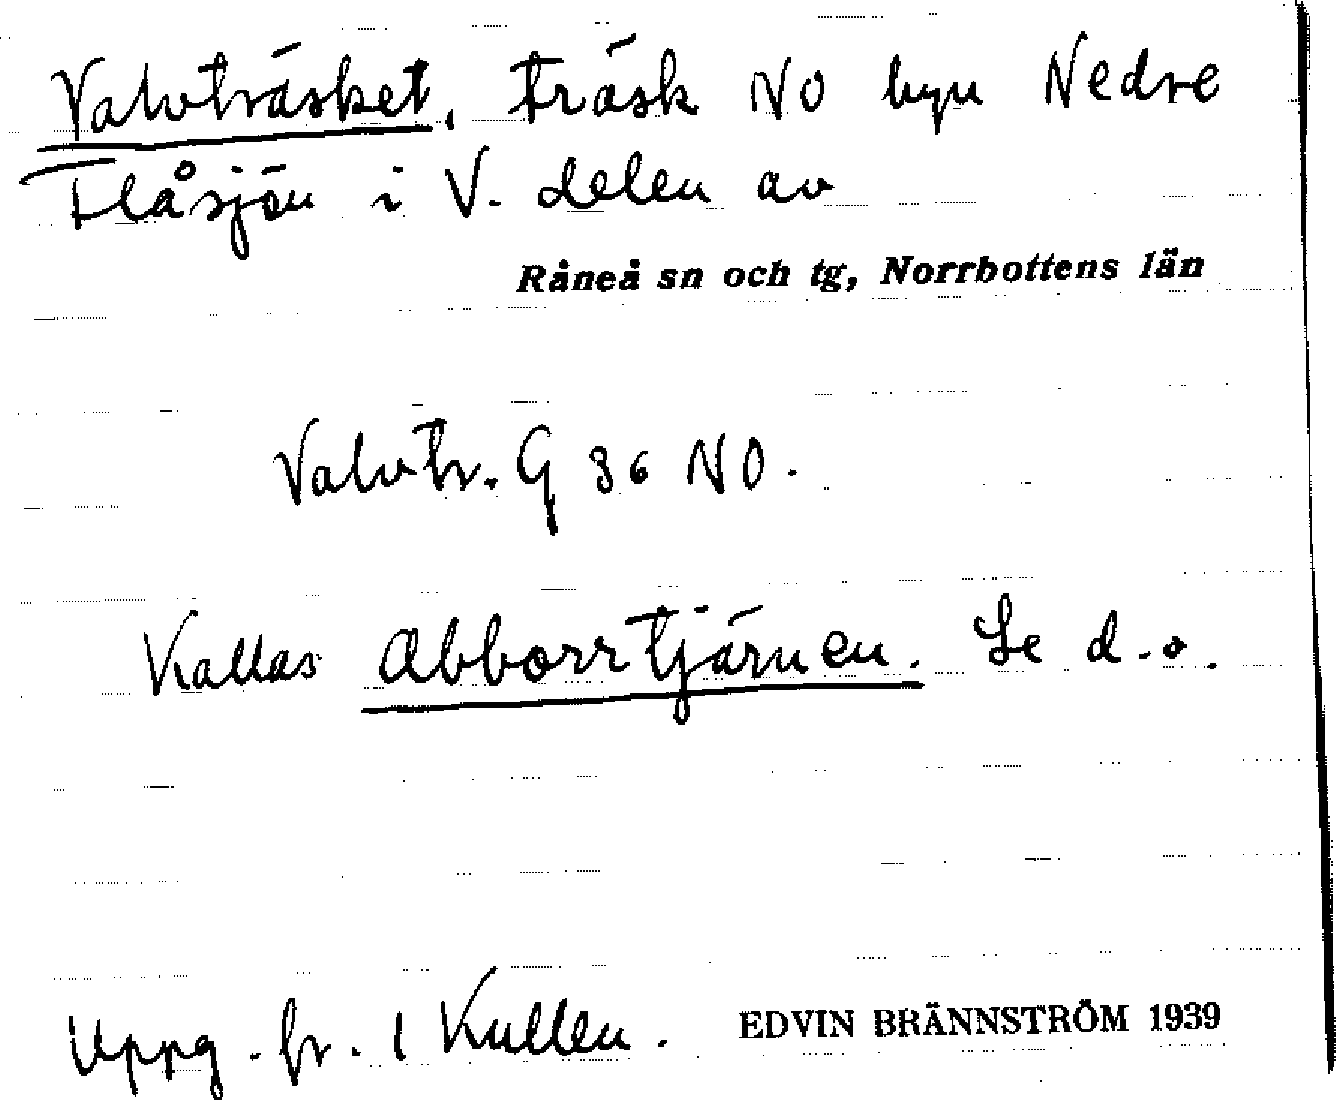 Valvträsket, träsk NO byn Nedre
Flåsjön i V. delen av
Råneå sn och tg, Norrbottens län
Valvtr. G 36 NO.
Kallas Abborrtjärnen. Se d.o.
Uppg. fr. 1 Kullen.
EDVIN BRÄNNSTRÖM 1939